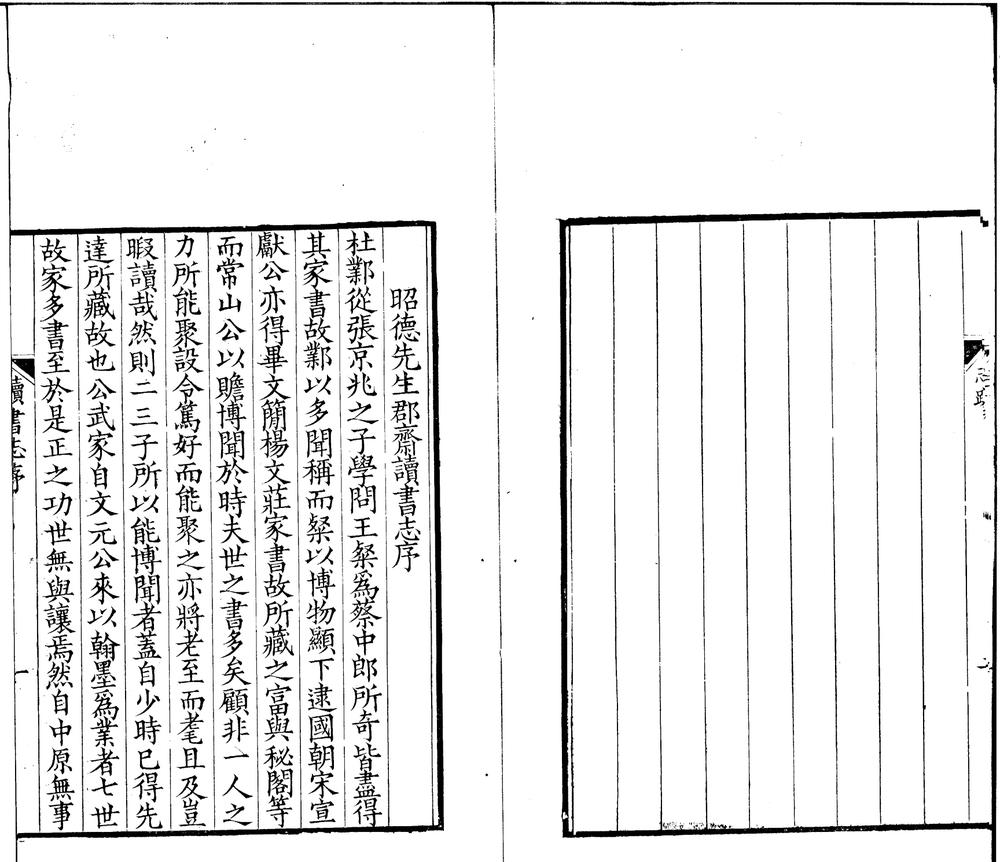 昭德先生郡齋讀書志序
杜鄴從張京兆之子學問王粲爲蔡中郎所奇皆盡得
其家書故鄴以多聞稱而粲以博物顯下逮國朝宋宣
獻公亦得畢文簡楊文莊家書故所藏之富與秘閣等
而常山公以贍博聞於時夫世之書多矣顧非一人之
力所能聚設令篤好而能聚之亦將老至而耄且及豈
暇讀哉然則二三子所以能博聞者蓋自少時已得先
達所藏故也公武家自文元公來以翰墨爲業者七世
故家多書至於是正之功世無與讓焉然自中原無事
讀書志序
一